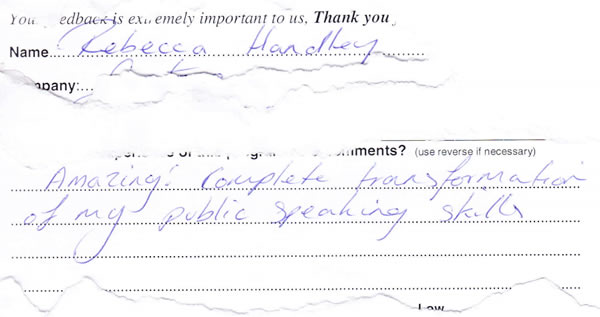 You edback is extremely important to us, Thank you
Name... Rebecca Handley
mpany:...
mments? (use reverse if necessary)
Amazing! Complete transformation
of my public speaking skills
Law